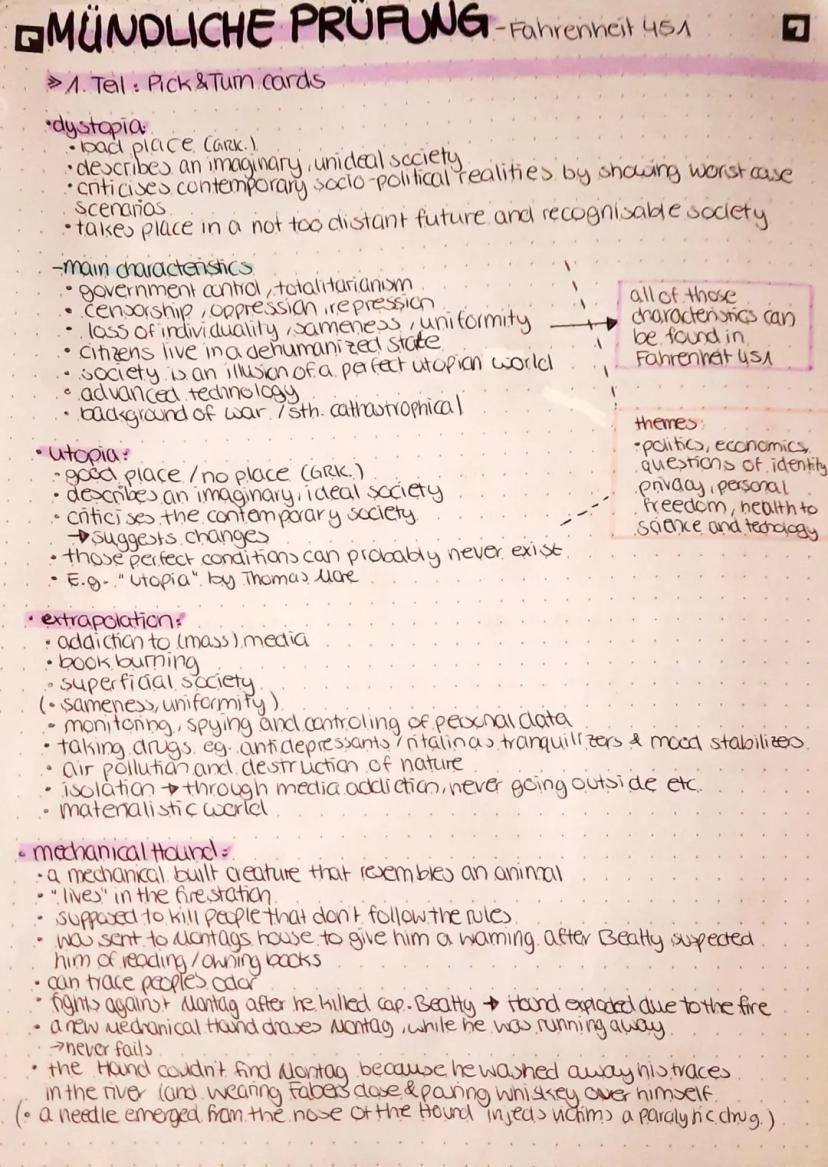 MÜNDLICHE PRÜFUNG - Fahrenheit 451
1
» 1. Teil: Pick & Turn cards
• dystopia:
• bad place (GRK.)
• describes an imaginary, unideal society
• criticises contemporary socio-political realities by showing worst case
scenarios
• takes place in a not too distant future and recognisable society
- main characteristics
• government control, totalitarianism
• censorship, oppression, repression
• loss of individuality, sameness, uniformity →
• citizens live in a dehumanized state
• society is an illusion of a perfect utopian world
• advanced technology
• background of war / sth. cathastrophical
all of those
characteristics can
be found in
Fahrenheit 451
themes:
• politics, economics,
questions of identity
privacy, personal
freedom, health to
science and techology
• utopia:
• good place / no place (GRK.)
• describes an imaginary, ideal society
• criticises the contemporary society
→ suggests changes
• those perfect conditions can probably never exist
• E.g. "Utopia" by Thomas More
• extrapolation:
• addiction to (mass) media
• book burning
• superficial society
(• sameness, uniformity)
• monitoring, spying and controling of personal data
• taking drugs eg. antidepressants / ritalin as tranquilizers & mood stabilizes
• air pollution and destruction of nature
• isolation → through media addiction, never going outside etc.
• materialistic world
• mechanical Hound:
• a mechanical built creature that resembles an animal
• "lives" in the firestation
• supposed to kill people that don't follow the rules
• was sent to Montags house to give him a warning after Beatty suspected
him of reading / owning books
• can trace peoples odor
• fights against Montag after he killed cap. Beatty → Hound exploded due to the fire
• a new Mechanical Hound chases Montag, while he was running away
→ never fails
• the Hound couldn't find Montag because he washed away his traces
in the river (and wearing Fabers close & pouring whiskey over himself
(• a needle emerged from the nose of the Hound injects victims a paralytic drug.)